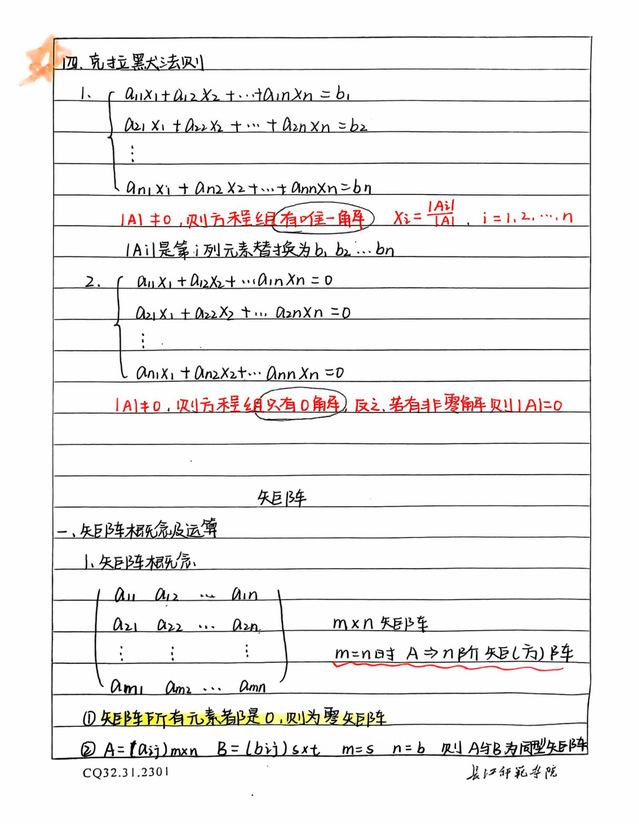 四、克拉默法则
1. a₁₁x₁+a₁₂x₂+…+a₁nxn=b₁
a₂₁x₁+a₂₂x₂+…+a₂nxn=b₂
⋮
an₁x₁+an₂x₂+…+annxn=bn
|A|≠0,则方程组有唯一解 xi=|Ai|/|A|, i=1,2,…,n
|Ai|是第i列元素替换为b₁ b₂…bn
2. a₁₁x₁+a₁₂x₂+…a₁nxn=0
a₂₁x₁+a₂₂x₂+…a₂nxn=0
⋮
an₁x₁+an₂x₂+…annxn=0
|A|≠0,则方程组只有0解,反之,若有非零解则|A|=0
矩阵
一、矩阵概念及运算
1、矩阵概念
a₁₁ a₁₂ … a₁n
a₂₁ a₂₂ … a₂n m×n矩阵
⋮ ⋮ ⋮ m=n时 A⇒n阶矩(方)阵
am₁ am₂ … amn
①矩阵所有元素都是0,则为零矩阵
② A=(aij)m×n B=(bij)s×t m=s n=b 则A与B为同型矩阵
CQ32.31.2301 长江师范学院